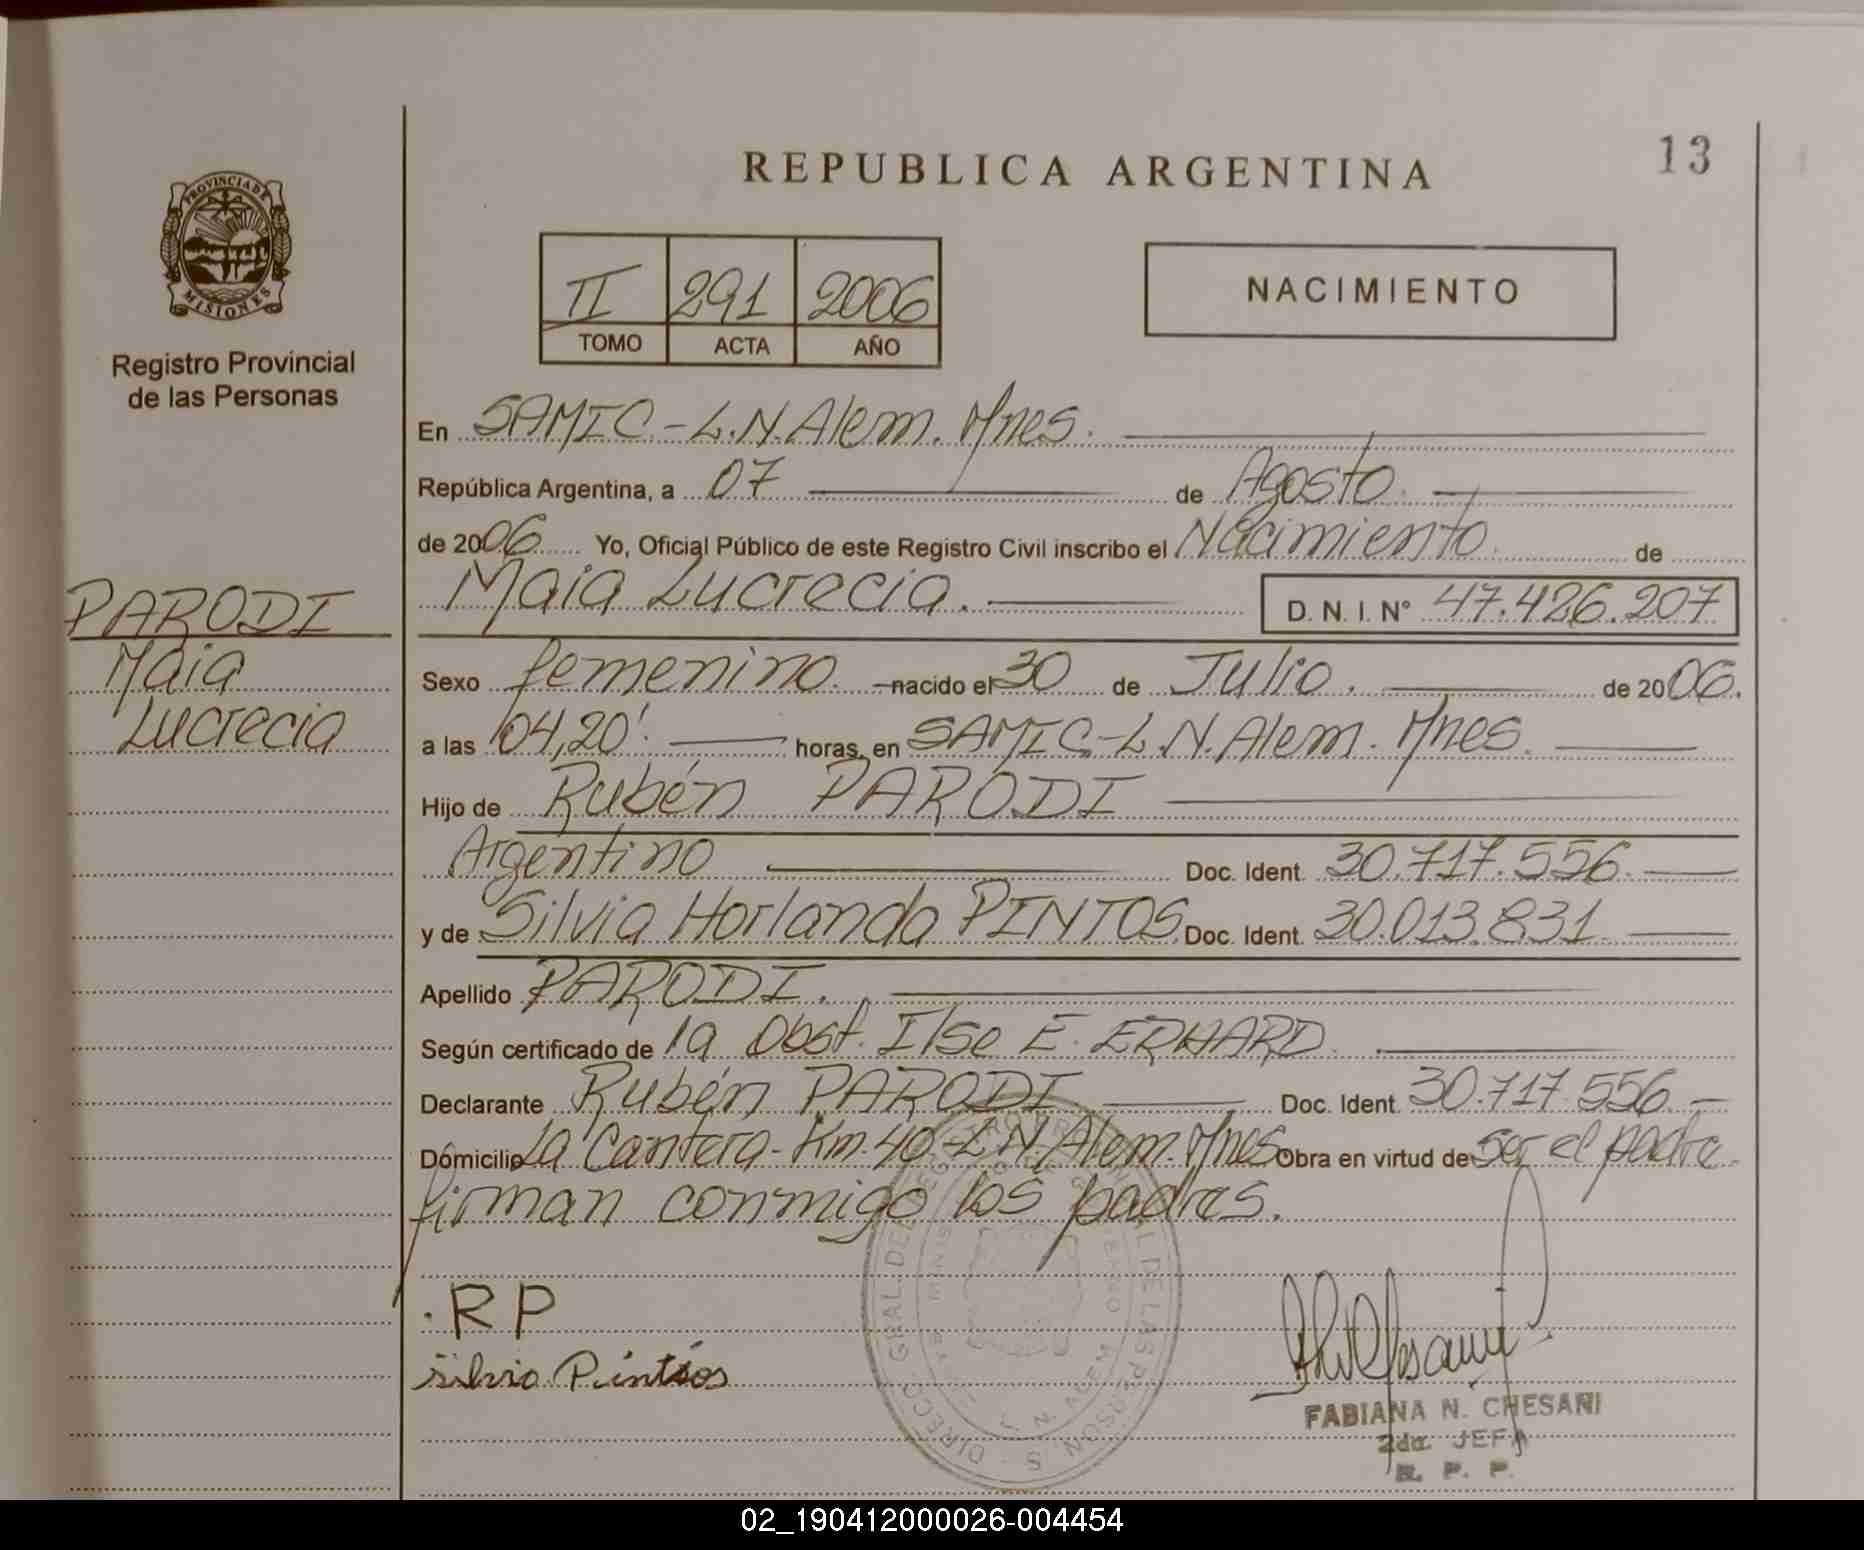 REPUBLICA ARGENTINA
13
PROVINCIA DE MISIONES
Registro Provincial
de las Personas
II 291 2006
TOMO ACTA AÑO
NACIMIENTO
En SAMIC.-L.N.Alem. Mnes.
República Argentina, a 07 de Agosto.
de 2006 Yo, Oficial Público de este Registro Civil inscribo el Nacimiento. de
Maia Lucrecia. D. N. I. N° 47.426.207
PARODI
Maia
Lucrecia
Sexo femenino. nacido el 30 de Julio. de 2006.
a las 04,20'. horas, en SAMIC.-L.N.Alem. Mnes.
Hijo de Rubén PARODI
Argentino Doc. Ident. 30.717.556.
y de Silvia Horlanda PINTOS. Doc. Ident. 30.013.831
Apellido PARODI.
Según certificado de la Obst. Ilse E. ERHARD.
Declarante Rubén PARODI Doc. Ident. 30.717.556.
Domicilio La Cantera-Km.40-L.N.Alem.Mnes. Obra en virtud de ser el padre.
firman conmigo los padres.
RP
silvia Pintos
FABIANA N. CHESANI
2da. JEFA
R. P. P.
02_190412000026-004454